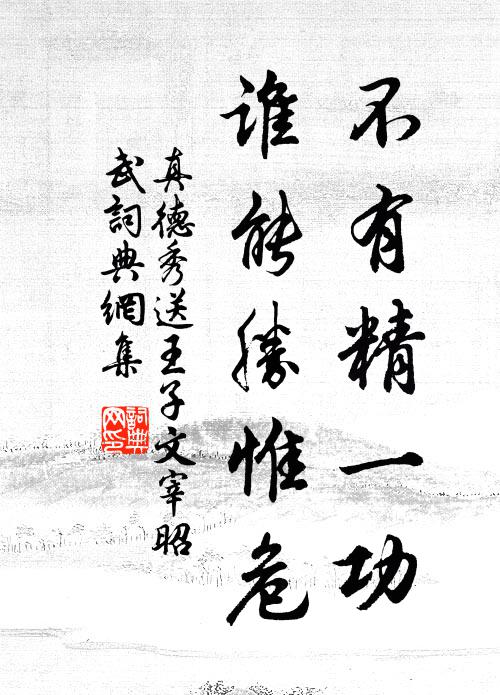 不有精一功
谁能勝惟危
真德秀送王子文宰昭
武詞典網集
詞典
网印